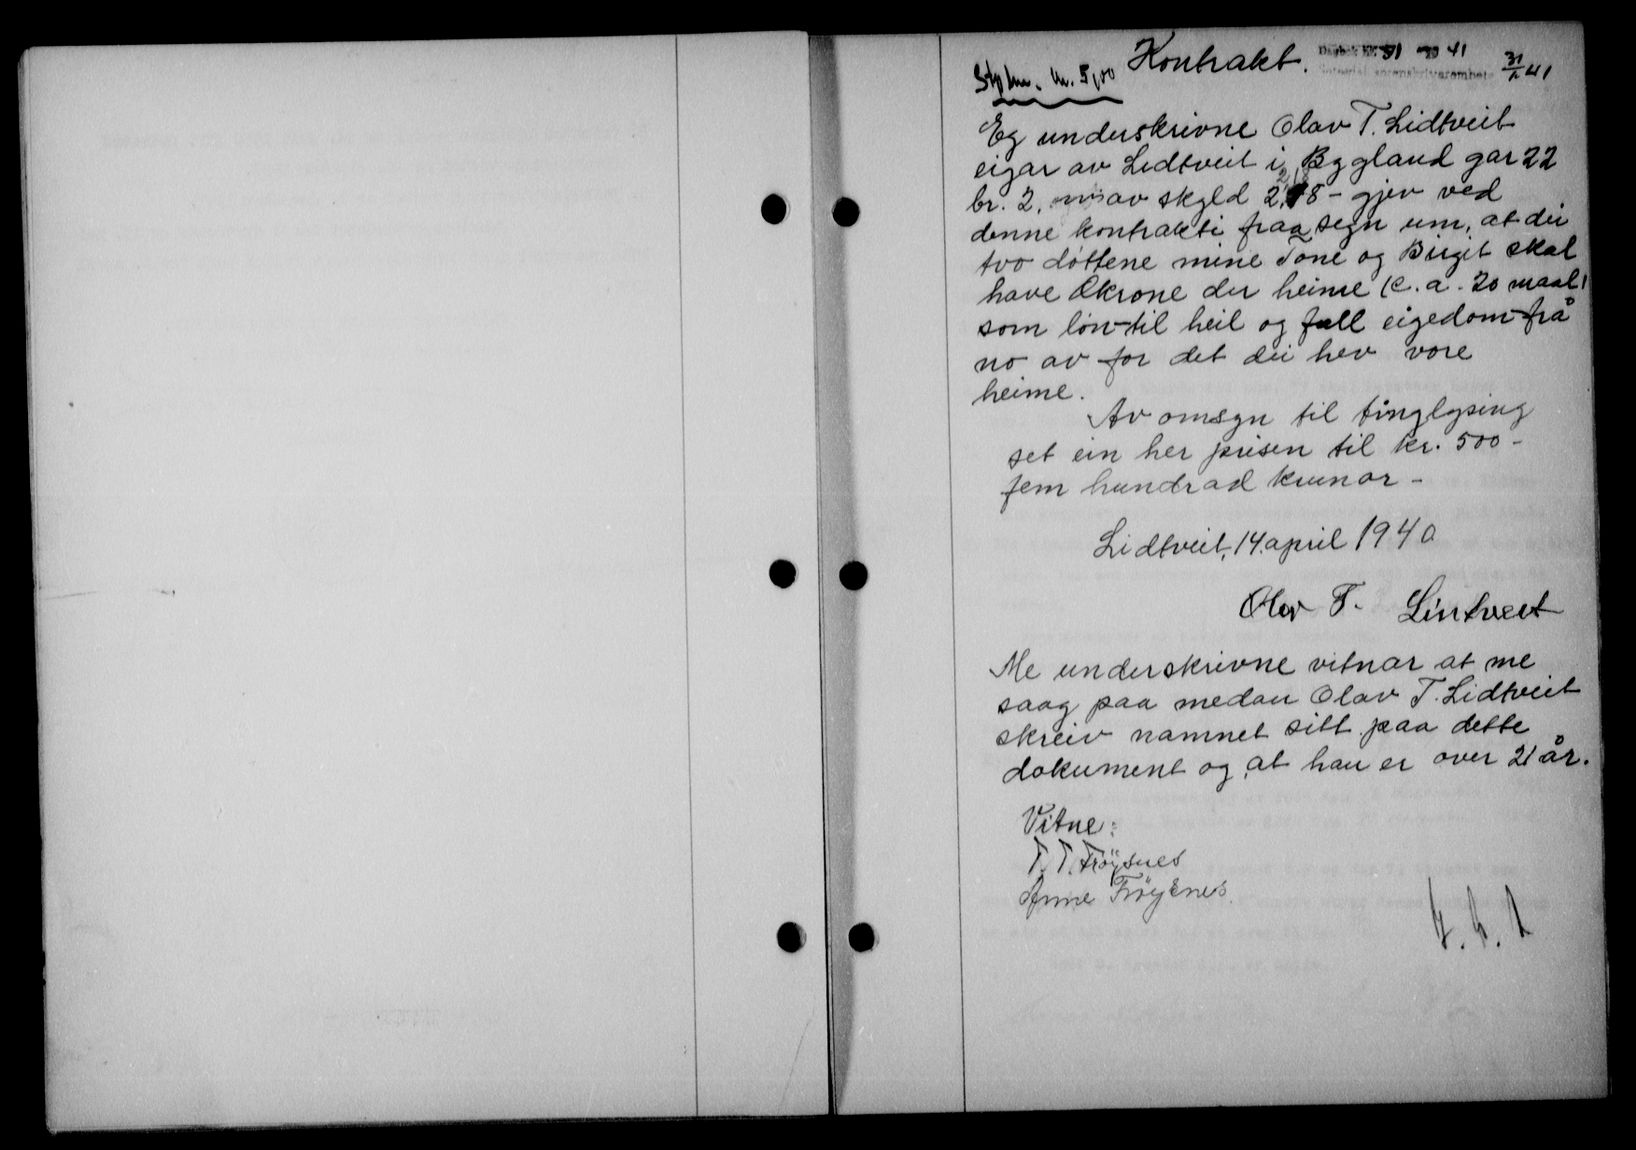 Kontrakt.
Dagbok nr. 91 19 41
31/1 41
kr. 5,00
Eg underskrivne Olav T. Lidtveit
eigar av Lidtveit i Bygland gar 22
br. 2, av skyld 2,18 - gjev ved
denne kontrakti fraa segn um, at dei
tvo døttene mine Tone og Birgit skal
have Økrone der heime (c. a. 20 maal)
som løn til heil og full eigedom frå
no av for det dei hev vore
heime.
Av omsyn til tinglysing
set ein her prisen til kr. 500 -
fem hundrad krunor -
Lidtveit, 14. april 1940
Olav T. Lintveit
Me underskrivne vitnar at me
saag paa medan Olav T. Lidtveit
skreiv namnet sitt paa dette
dokument og at han er over 21 år.
Vitne:
T. T. Frøysnes
Anne Frøysnes.